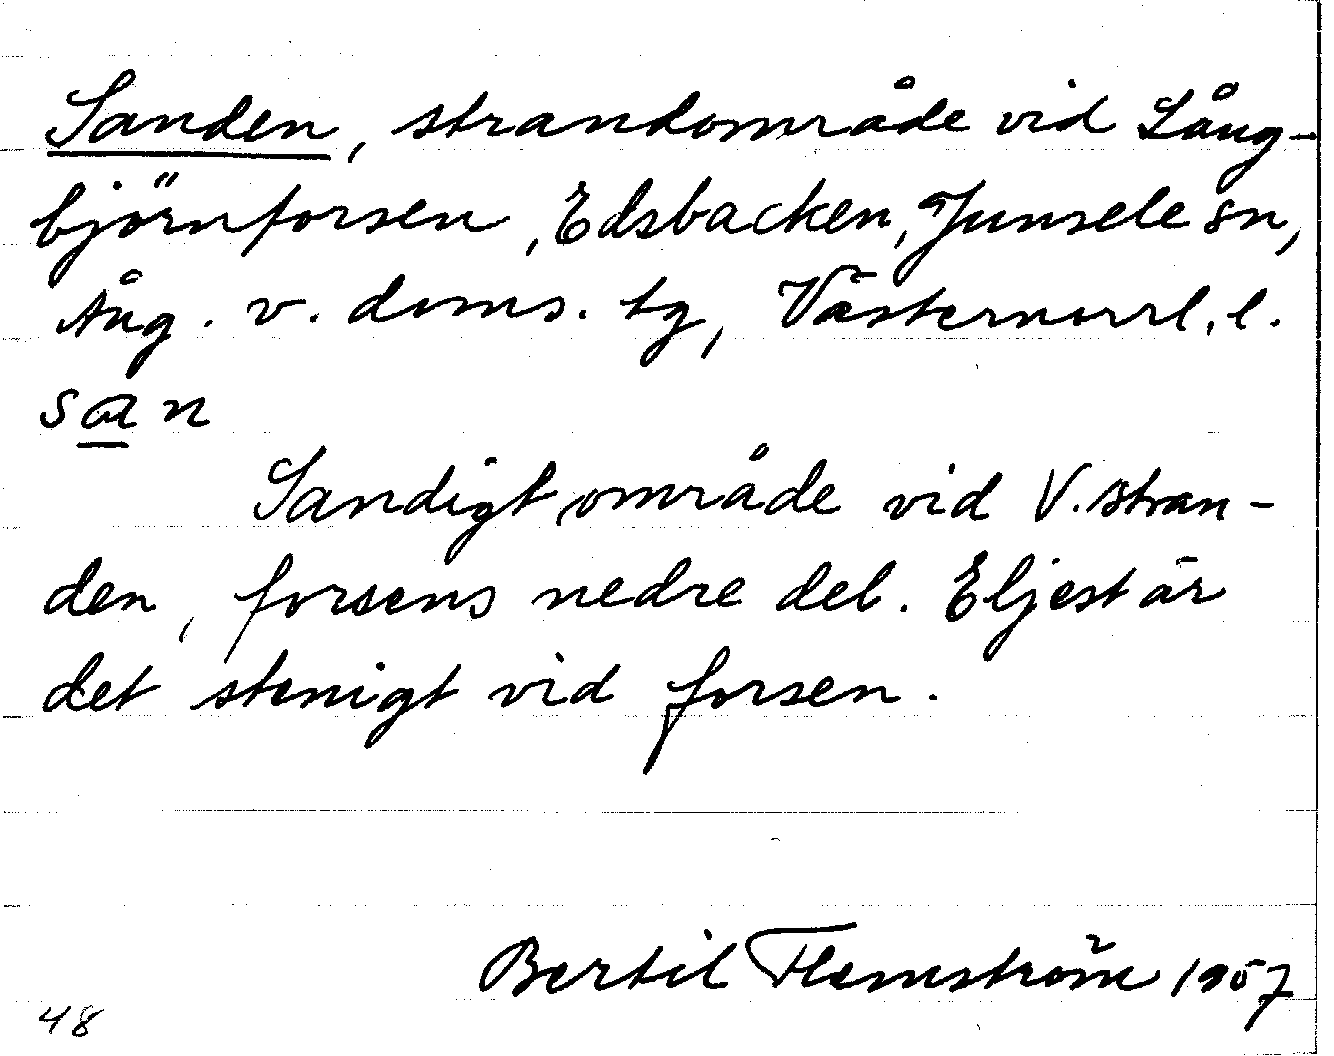 Sanden, strandområde vid Lång-
björnforsen, Edsbacken, Junsele sn,
Ång. v. doms. tg, Västernorrl. l.
san
Sandigt område vid V. stran-
den, forsens nedre del. Eljest är
det stenigt vid forsen.
Bertil Flemström 1957
48